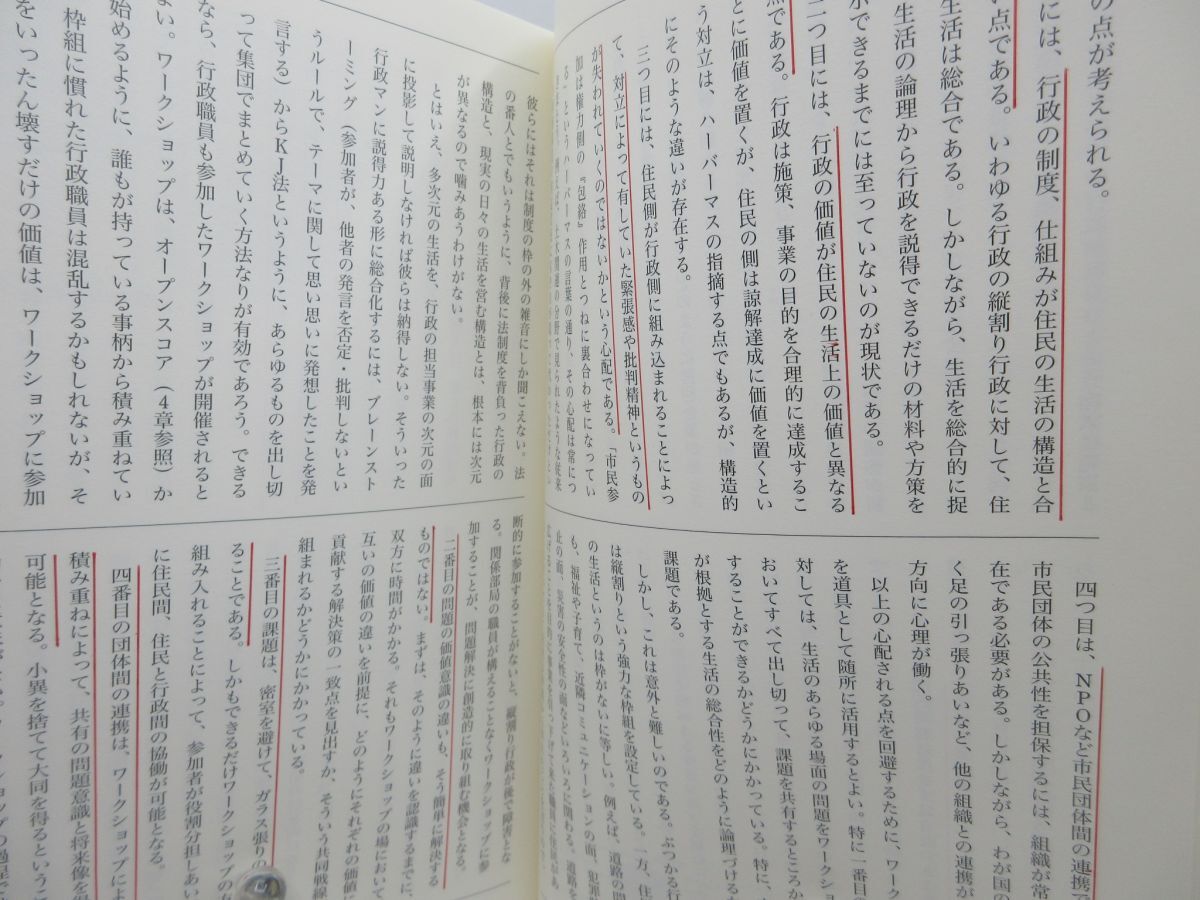 の点が考えられる。
には、行政の制度、仕組みが住民の生活の構造と合
い点である。いわゆる行政の縦割り行政に対して、住
生活は総合である。しかしながら、生活を総合的に捉
生活の論理から行政を説得できるだけの材料や方策を
示できるまでには至っていないのが現状である。
二つ目には、行政の価値が住民の生活上の価値と異なる
点である。行政は施策、事業の目的を合理的に達成するこ
とに価値を置くが、住民の側は諒解達成に価値を置くとい
う対立は、ハーバーマスの指摘する点でもあるが、構造的
にそのような違いが存在する。
三つ目には、住民側が行政側に組み込まれることによっ
て、対立によって有していた緊張感や批判精神というもの
が失われていくのではないかという心配である。「市民参
加は権力側の『包絡』作用とつねに裏合わせになってい
る」というハーバーマスの言葉の通り、その心配は常につ
四つ目は、NPOなど市民団体間の連携で
市民団体の公共性を担保するには、組織が常
在である必要がある。しかしながら、わが国の
く足の引っ張りあいなど、他の組織との連携が
方向に心理が働く。
以上の心配される点を回避するために、ワーク
を道具として随所に活用するとよい。特に一番目の
対しては、生活のあらゆる場面の問題をワークショ
おいてすべて出し切って、課題を共有するところか
することができるかどうかにかかっている。特に、
が根拠とする生活の総合性をどのように論理づけるか
課題である。
しかし、これは意外と難しいのである。ぶつかる行
は縦割りという強力な枠組を設定している。一方、住
の生活というのは枠がないに等しい。例えば、道路の問
も、福祉や子育て、近隣コミュニケーションの面、犯罪
止の面、災害の安全性の面などいろいろに関わる。道路を
彼らにはそれは制度の枠の外の雑音にしか聞こえない。法
の番人とでもいうように、背後に法制度を背負った行政の
構造と、現実の日々の生活を営む構造とは、根本には次元
が異なるので噛みあうわけがない。
とはいえ、多次元の生活を、行政の担当事業の次元の面
に投影して説明しなければ彼らは納得しない。そういった
行政マンに説得力ある形に総合化するには、ブレーンスト
ーミング（参加者が、他者の発言を否定・批判しないとい
うルールで、テーマに関して思い思いに発想したことを発
言する）からKJ法というように、あらゆるものを出し切
って集団でまとめていく方法なりが有効であろう。できる
なら、行政職員も参加したワークショップが開催されると
よい。ワークショップは、オープンスコア（4章参照）か
始めるように、誰もが持っている事柄から積み重ねてい
枠組に慣れた行政職員は混乱するかもしれないが、そ
をいったん壊すだけの価値は、ワークショップに参加
断的に参加することがないと、縦割り行政が後で障害とな
る。関係部局の職員が構えることなくワークショップに参
加することが、問題解決に創造的に取り組む機会となる。
二番目の問題の価値意識の違いも、そう簡単に解決する
ものではない。まずは、そのように違いを認識するまでに、
双方に時間がかかる。それもワークショップの場において
互いの価値の違いを前提に、どのようにそれぞれの価値に
貢献する解決策の一致点を見出すか、そういう共同戦線
組まれるかどうかにかかっている。
三番目の課題は、密室を避けて、ガラス張りの
ることである。しかもできるだけワークショップの
組み入れることによって、参加者が役割分担しあい
に住民間、住民と行政間の協働が可能となる。
四番目の団体間の連携は、ワークショップによ
積み重ねによって、共有の問題意識と将来像を
可能となる。小異を捨てて大同を得るというこ